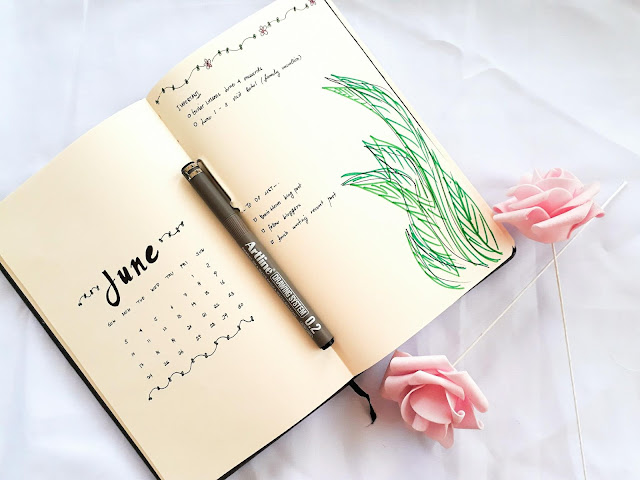 June
SUN MON TUE WED THU FRI
1 2
3 4 5 6 7 8 9
10 11 12 13 14 15 16
17 18 19 20 21 22 23
24 25 26 27 28 29 30
Artline DRAWING SYSTEM 0.2
June 1 - 3 visit (family vacation)
TO DO LIST
Brainstorm blog post
follow bloggers
finish writing recent post